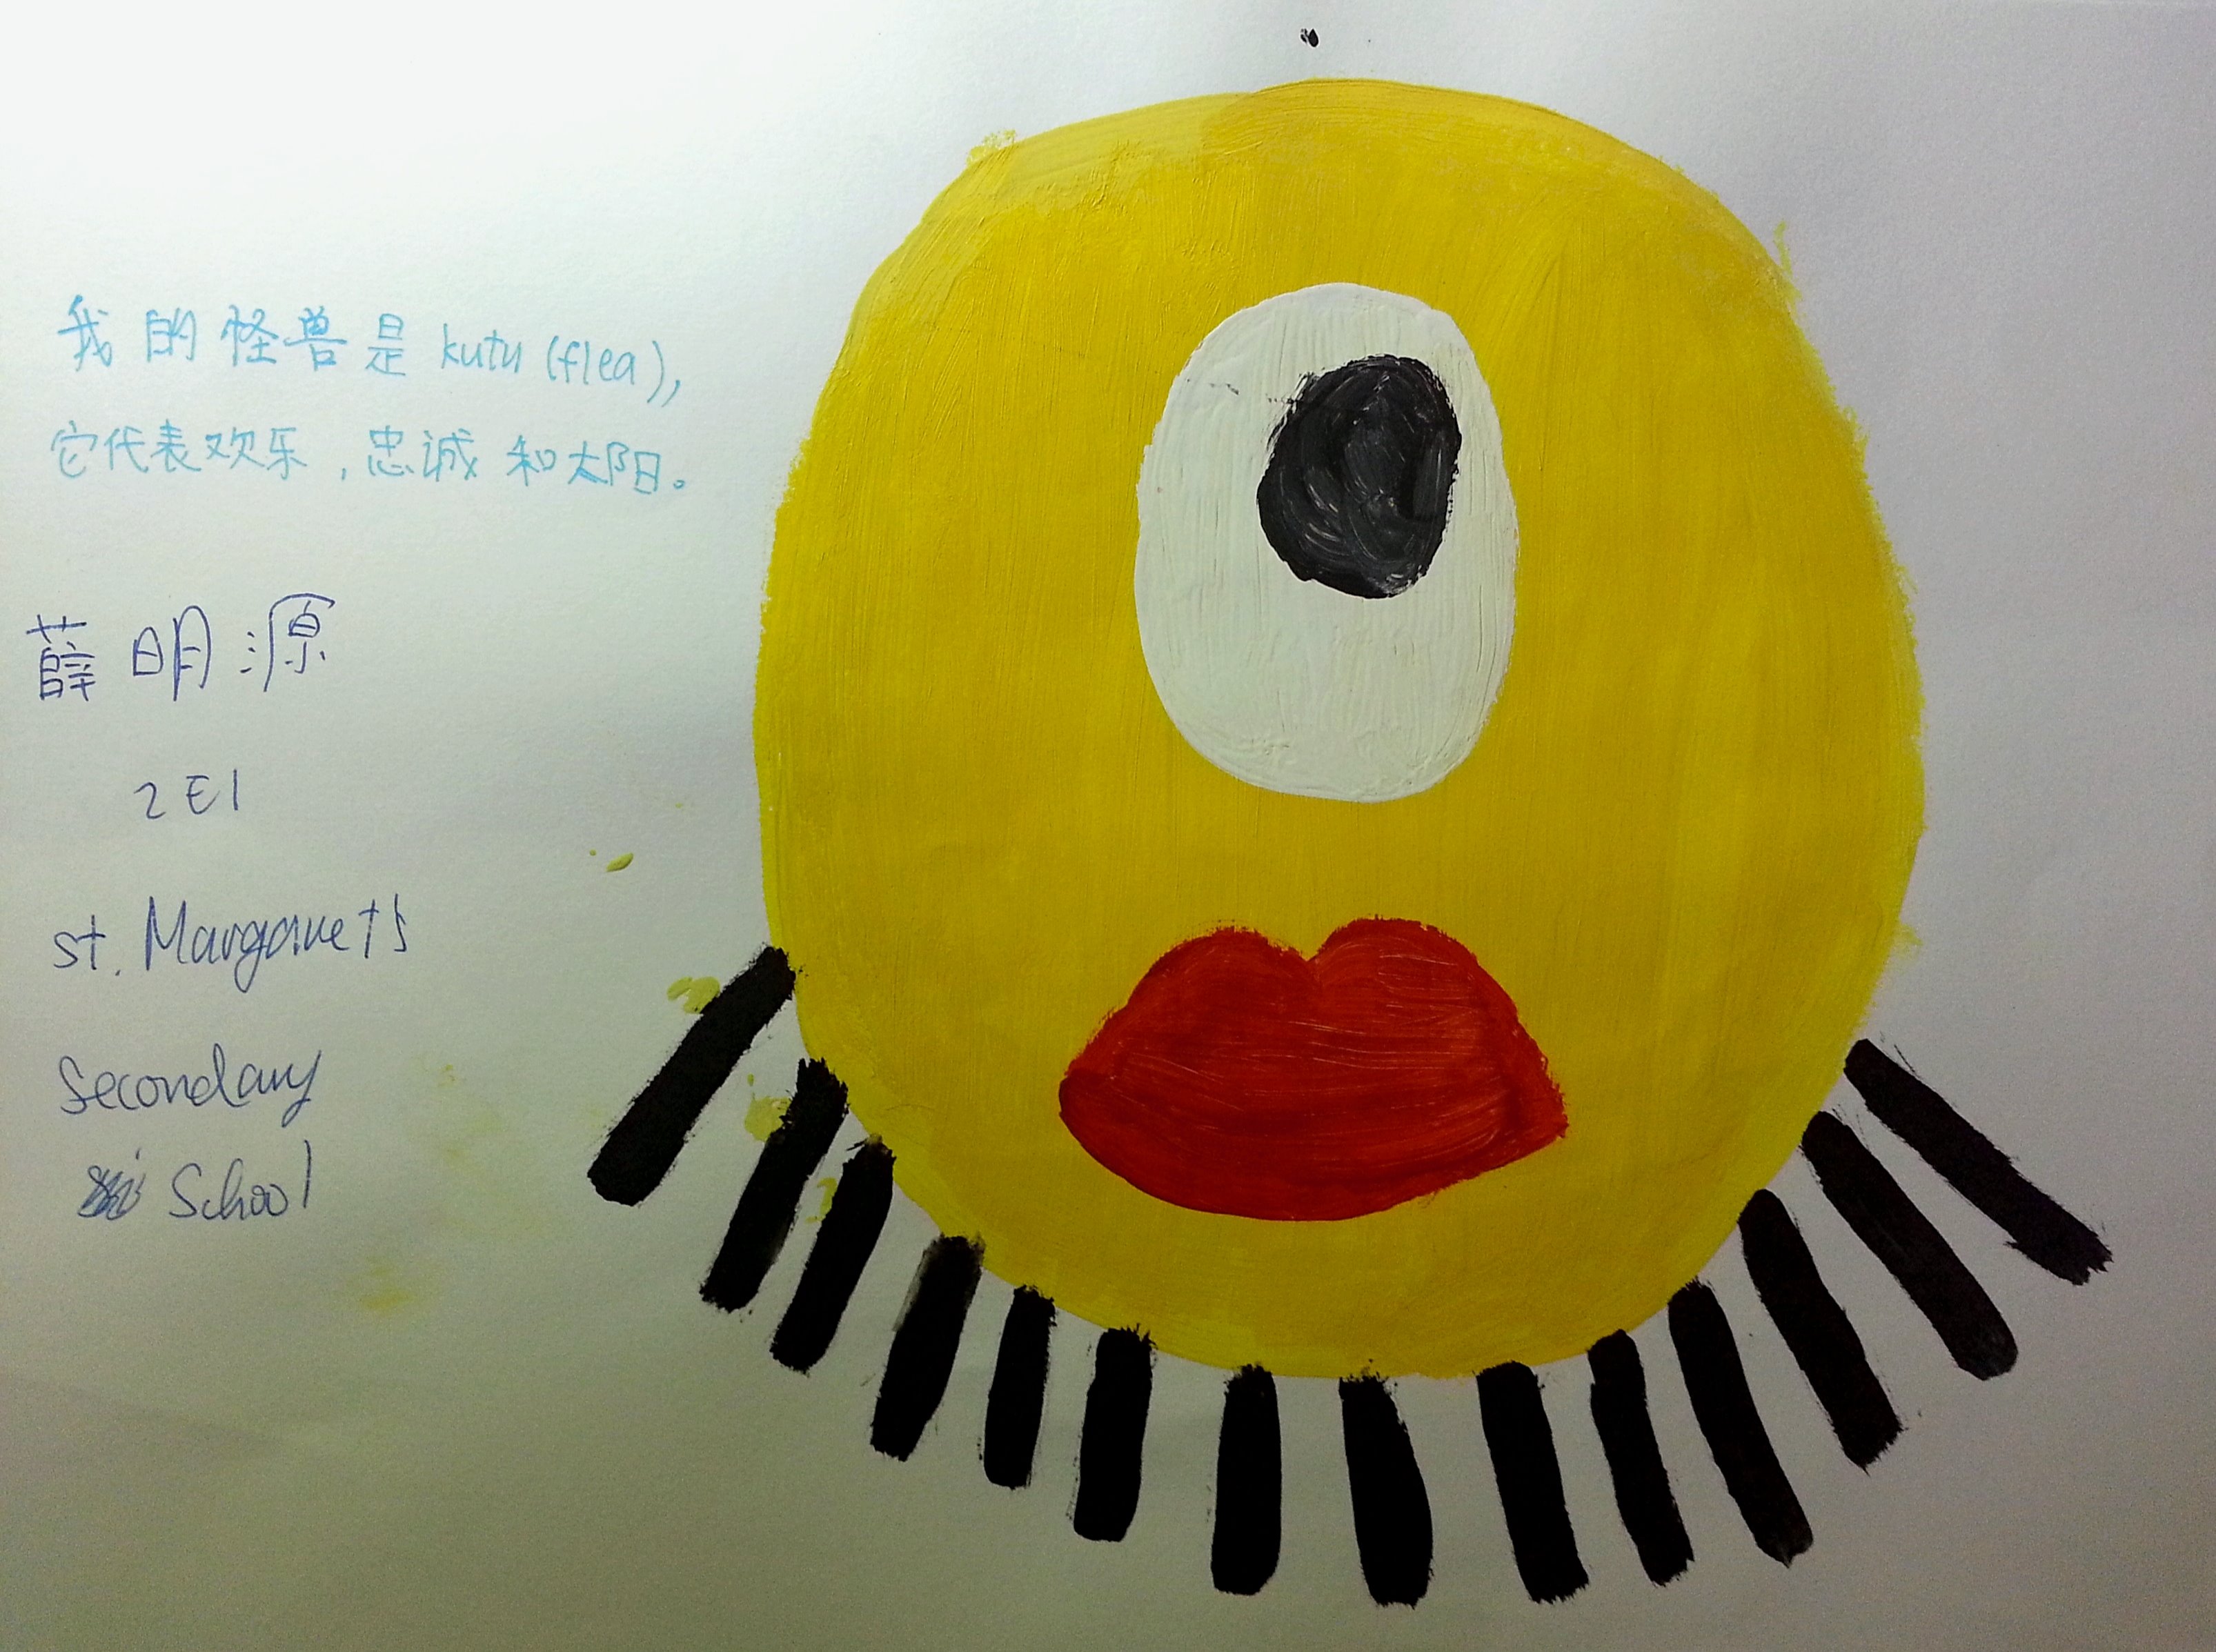 我的怪兽是 kutu (flea),
它代表欢乐,忠诚和太阳。
薛明源
2E1
st. Margaret's
Secondary
School